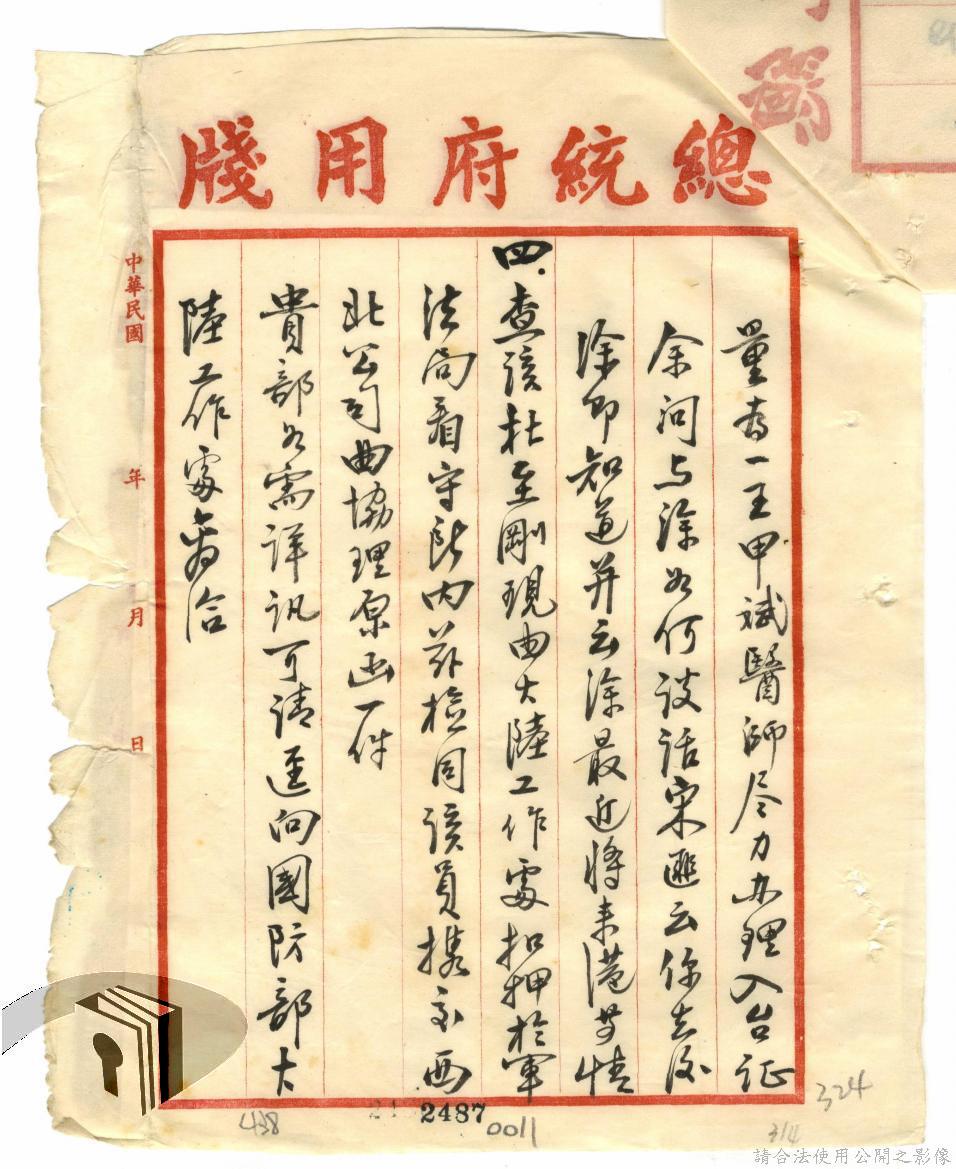 總統府用牋
量為一王甲斌醫師尽力办理入台証
余问与涂如何谈话宋匪云你去后
涂即知道并云涂最近將来港等情
四、查該杜至剛現由大陸工作處扣押於軍
法局看守所内茲检同該員携交西
北公司曲協理原函一件
貴部如需詳訊可請逕向國防部大
陸工作處商洽
中華民國 年 月 日
2487
0011
438
314
324
請合法使用公開之影像